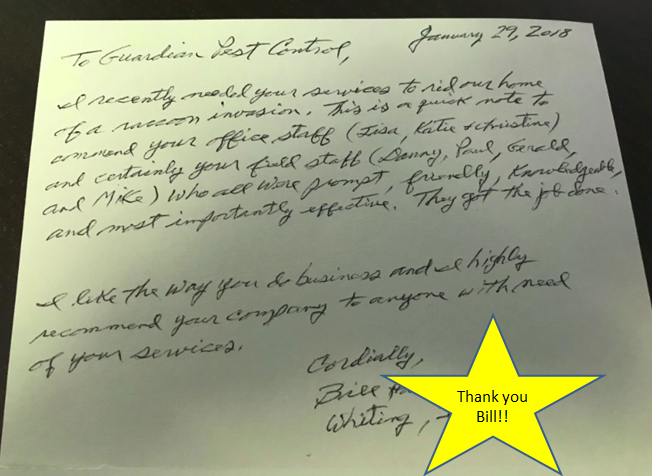 January 29, 2018
To Guardian Pest Control,
I recently needed your services to rid our home
of a raccoon invasion. This is a quick note to
commend your office staff (Lisa, Katie + Christine)
and certainly your field staff (Danny, Paul, Gerald,
and Mike) who all were prompt, friendly, knowledgeable,
and most importantly effective. They got the job done.
I like the way you do business and I highly
recommend your company to anyone with need
of your services.
Cordially,
Bill
Whiting,
Thank you
Bill!!